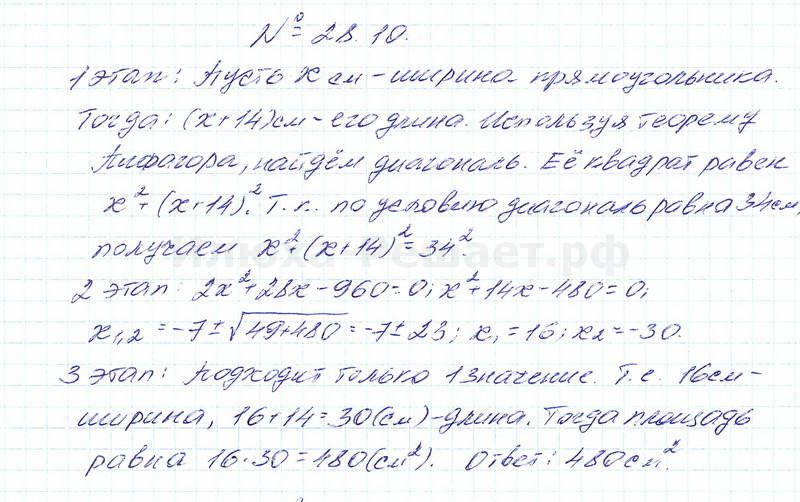 № 28.10.
1 этап: Пусть x см - ширина прямоугольника.
Тогда: (x+14) см - его длина. Используя теорему
Пифагора, найдём диагональ. Её квадрат равен
x²+(x+14)². Т.к. по условию диагональ равна 34 см,
получаем x²+(x+14)²=34².
Илюха-Решает.рф
2 этап: 2x²+28x-960=0; x²+14x-480=0;
x₁,₂=-7±√49+480=-7±23; x₁=16; x₂=-30.
3 этап: Подходит только 1 значение. Т.е. 16 см -
ширина, 16+14=30 (см) - длина. Тогда площадь
равна 16·30=480 (см²). Ответ: 480 см².